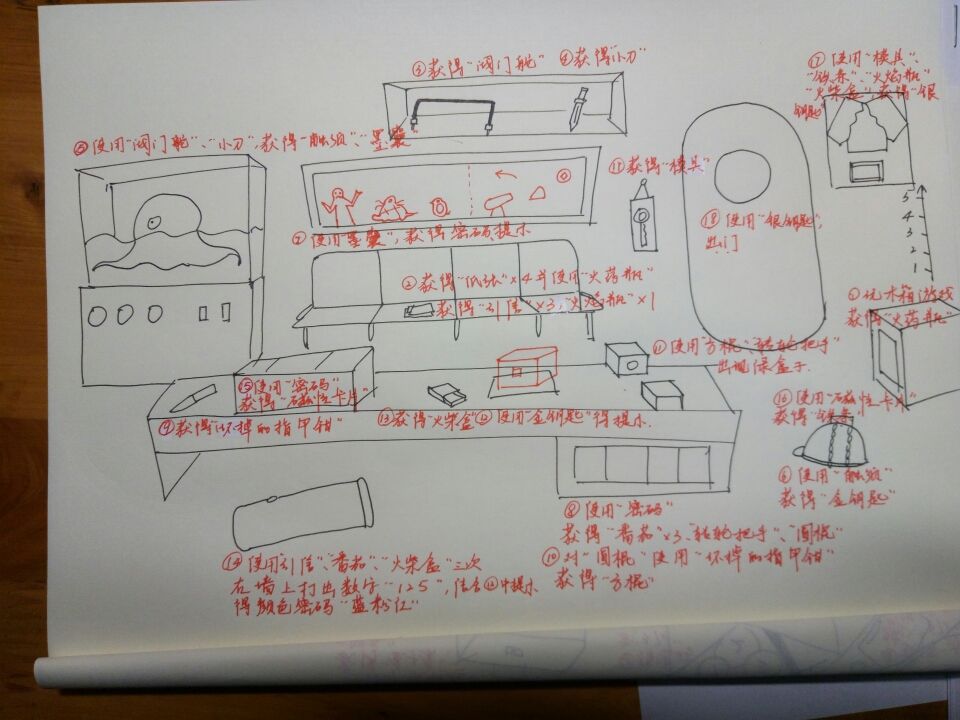 ③获得“阀门舵” ④获得“小刀”
⑰使用“模具”、
“铁条”、“火焰瓶”
“火柴盒”，获得“银
钥匙
⑤使用“阀门舵”、“小刀”，获得“触须”、“墨囊”
⑰获得“模具”
5
4
3
2
1
⑱使用“银钥匙”，
出门
⑦使用“墨囊”，获得密码提示
②获得“纸张”×4并使用“火药瓶”
获得“引信”×3、“火焰瓶”×1
①玩木箱游戏
获得“火药瓶”
⑪使用“方棍”、“转轮把手”
出现绿盒子.
⑮使用“密码”
获得“磁性卡片”
⑯使用“磁性卡片”
获得“铁条”
⑨获得“坏掉的指甲钳”
⑬获得“火柴盒”
⑫使用“金钥匙”得提示.
⑥使用“触须”
获得“金钥匙”
⑧使用“密码”
获得“番茄”×3、“转轮把手”、“圆棍”
⑩对“圆棍”使用“坏掉的指甲钳”
获得“方棍”
⑭使用“引信”、“番茄”、“火柴盒”三次
在墙上打出数字“125”，结合⑫中提示
得颜色密码“蓝粉红”